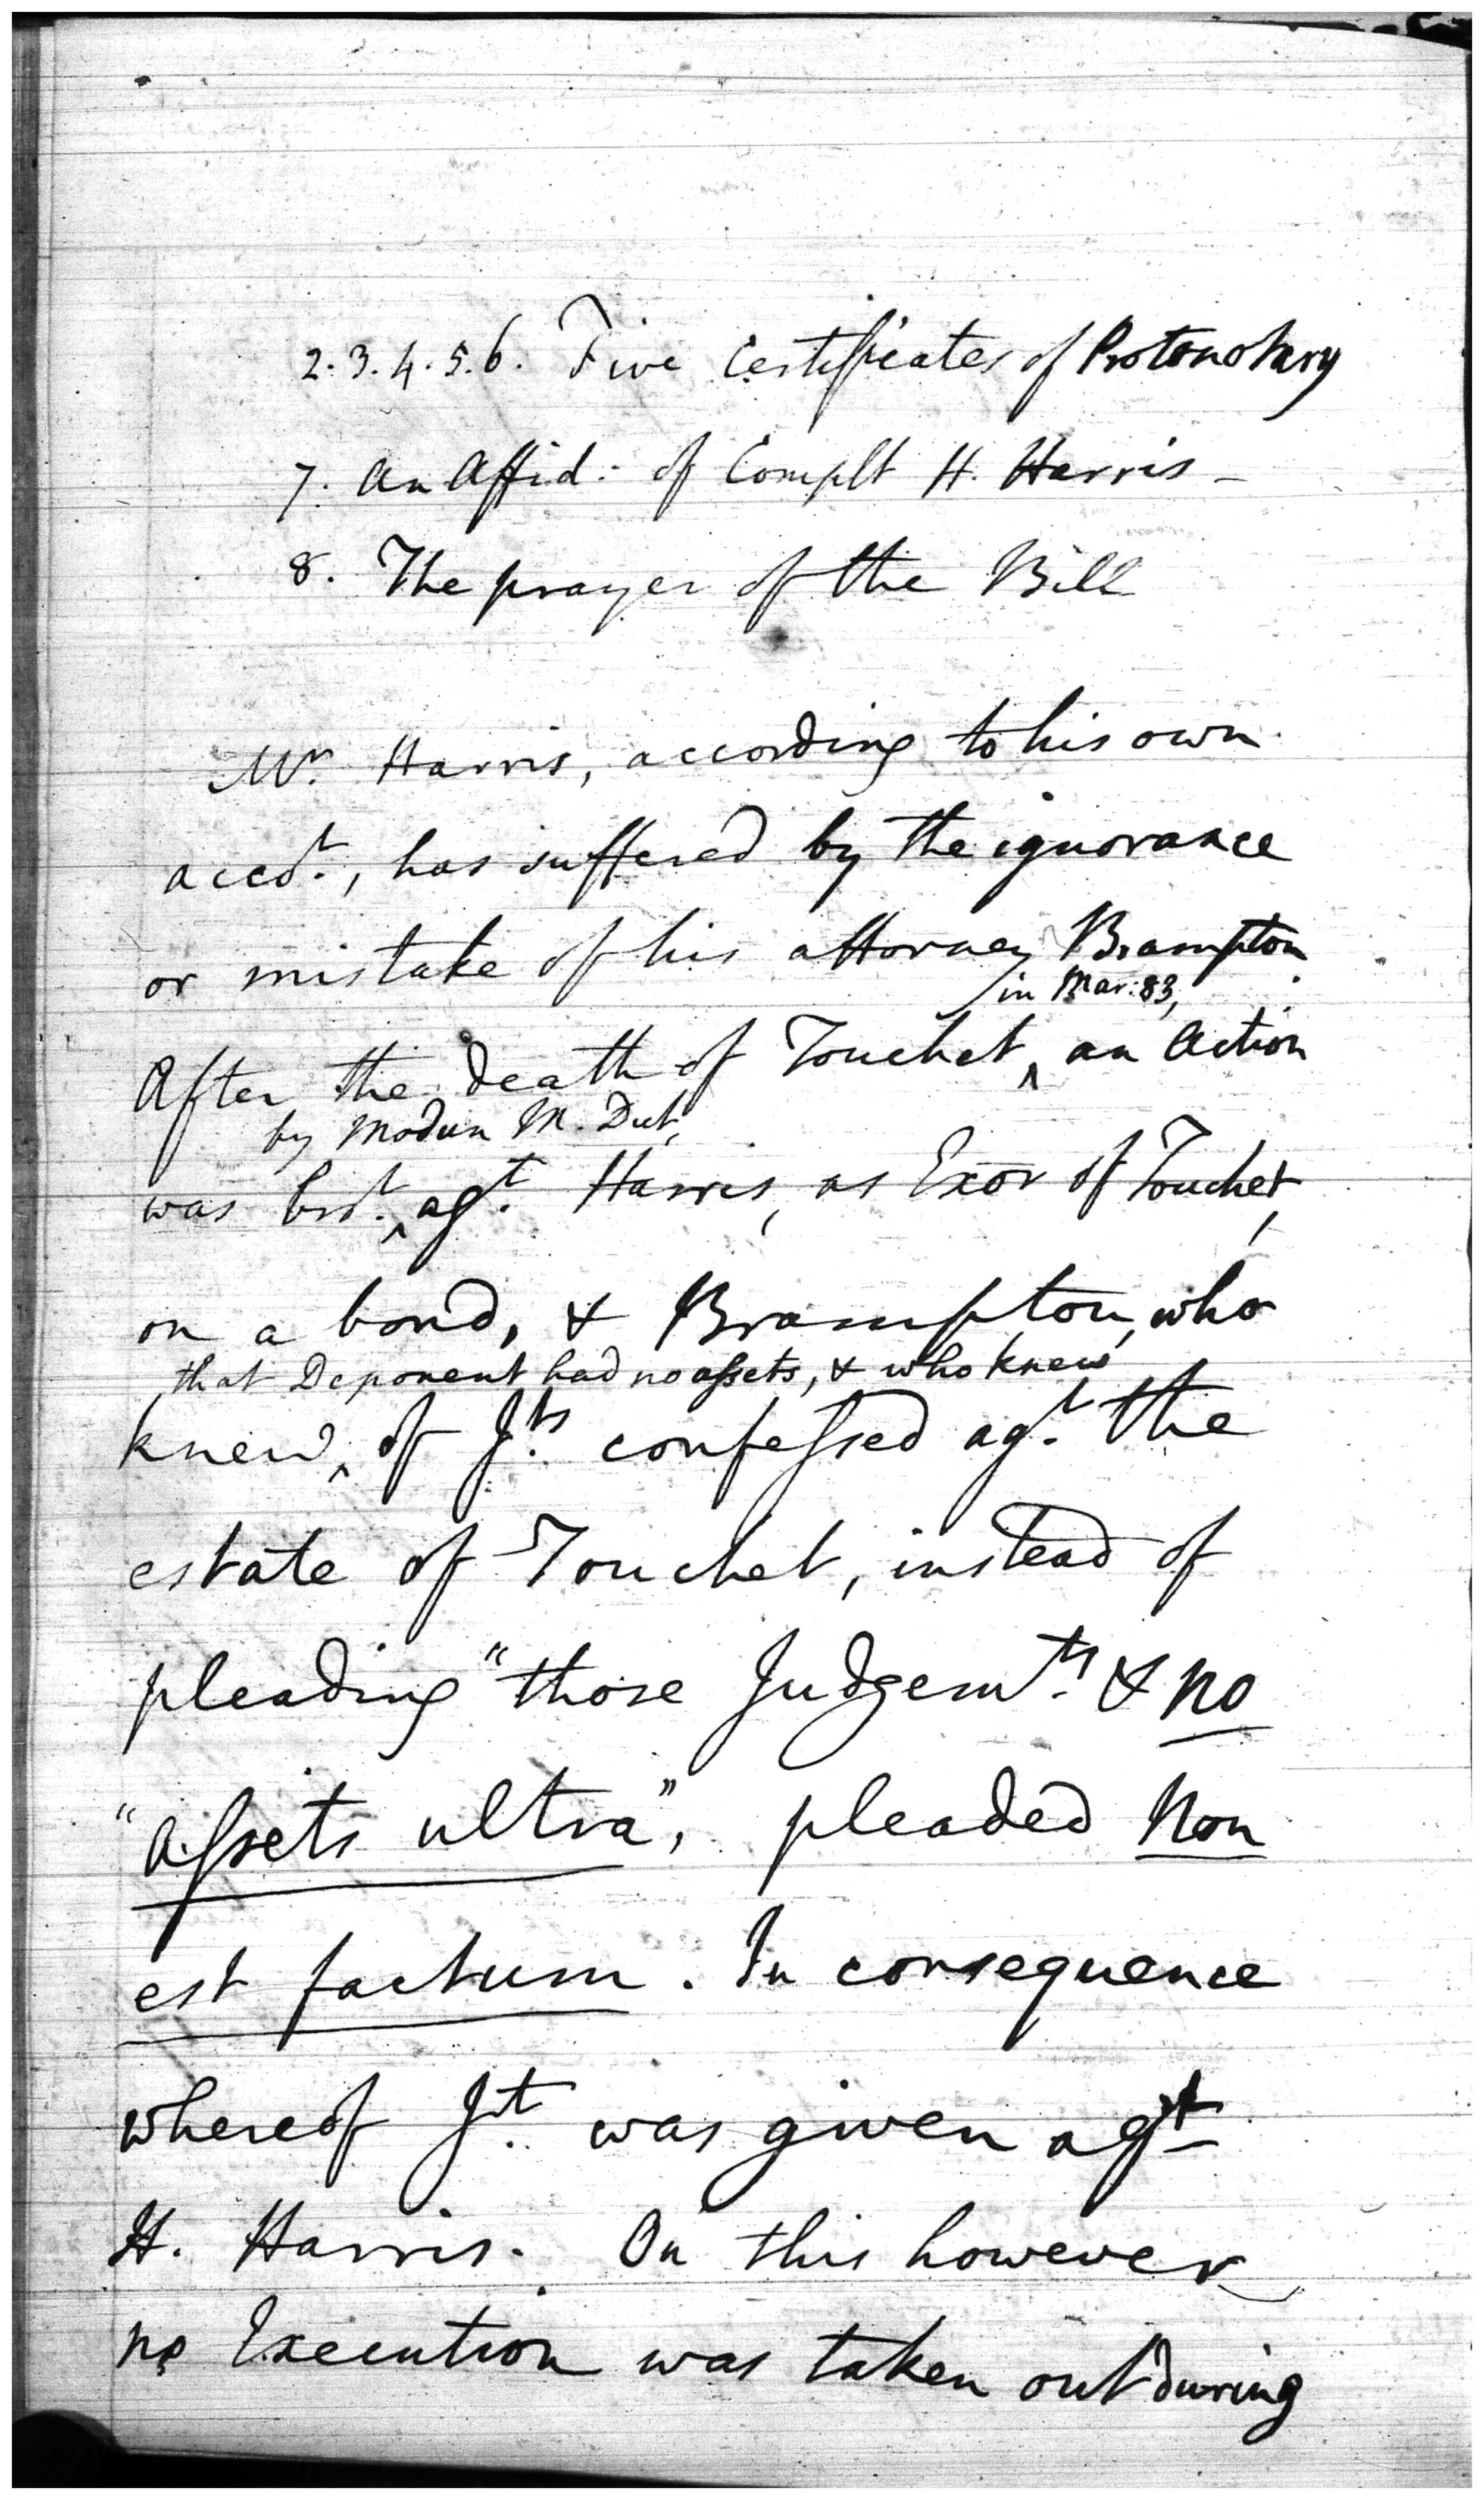 2.3.4.5.6. Five Certificates of Protonotary
7. An Affid: of Complt H. Harris -
8. The prayer of the Bill
Mr. Harris, according to his own
accot., has suffered by the ignorance
or mistake of his attorney Brampton.
in Mar: 83,
After the death of Touchet, ^ an Action
by Modun M. Dut,
was brot. ^ agt. Harris, as Exor of Touchet,
on a bond, & Brampton, who
that Deponent had no assets, & who knew
knew, ^ of Jts. confessed agt. the
estate of Touchet, instead of
pleading "those Judgemts. & no
"assets ultra", pleaded Non
est factum. In consequence
whereof Jt. was given agt
H. Harris. On this however
no Execution was taken out during